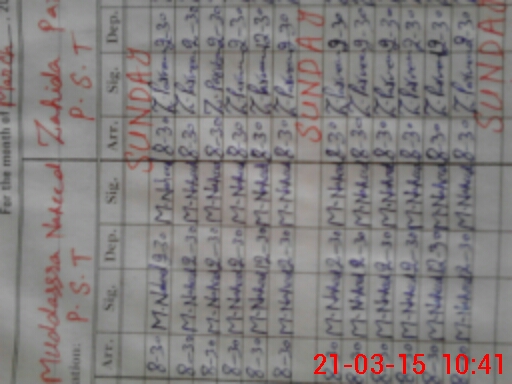 For the month of March 20
Muddassra Naheed Zahida Pa
ation: P.S.T P.S.T
Arr. Sig. Dep. Sig. Arr. Sig. Dep.
SUNDAY
8-30 M.Naheed 12-30 M.Naheed 8-30 Z.Parveen 12-30
8-30 M.Naheed 12-30 M.Naheed 8-30 Z.Parveen 12-30
8-30 M.Naheed 12-30 M.Naheed 8-30 Z.Parveen 12-30
8-30 M.Naheed 12-30 M.Naheed 8-30 Z.Parveen 12-30
8-30 M.Naheed 12-30 M.Naheed 8-30 Z.Parveen 12-30
8-30 M.Naheed 12-30 M.Naheed 8-30 Z.Parveen 12-30
SUNDAY
8-30 M.Naheed 12-30 M.Naheed 8-30 Z.Parveen 12-30
8-30 M.Naheed 12-30 M.Naheed 8-30 Z.Parveen 12-30
8-30 M.Naheed 12-30 M.Naheed 8-30 Z.Parveen 12-30
8-30 M.Naheed 12-30 M.Naheed 8-30 Z.Parveen 12-30
8-30 M.Naheed 12-30 M.Naheed 8-30 Z.Parveen 12-30
8-30 M.Naheed 12-30 M.Naheed 8-30 Z.Parveen 12-30
SUNDAY
21-03-15 10:41